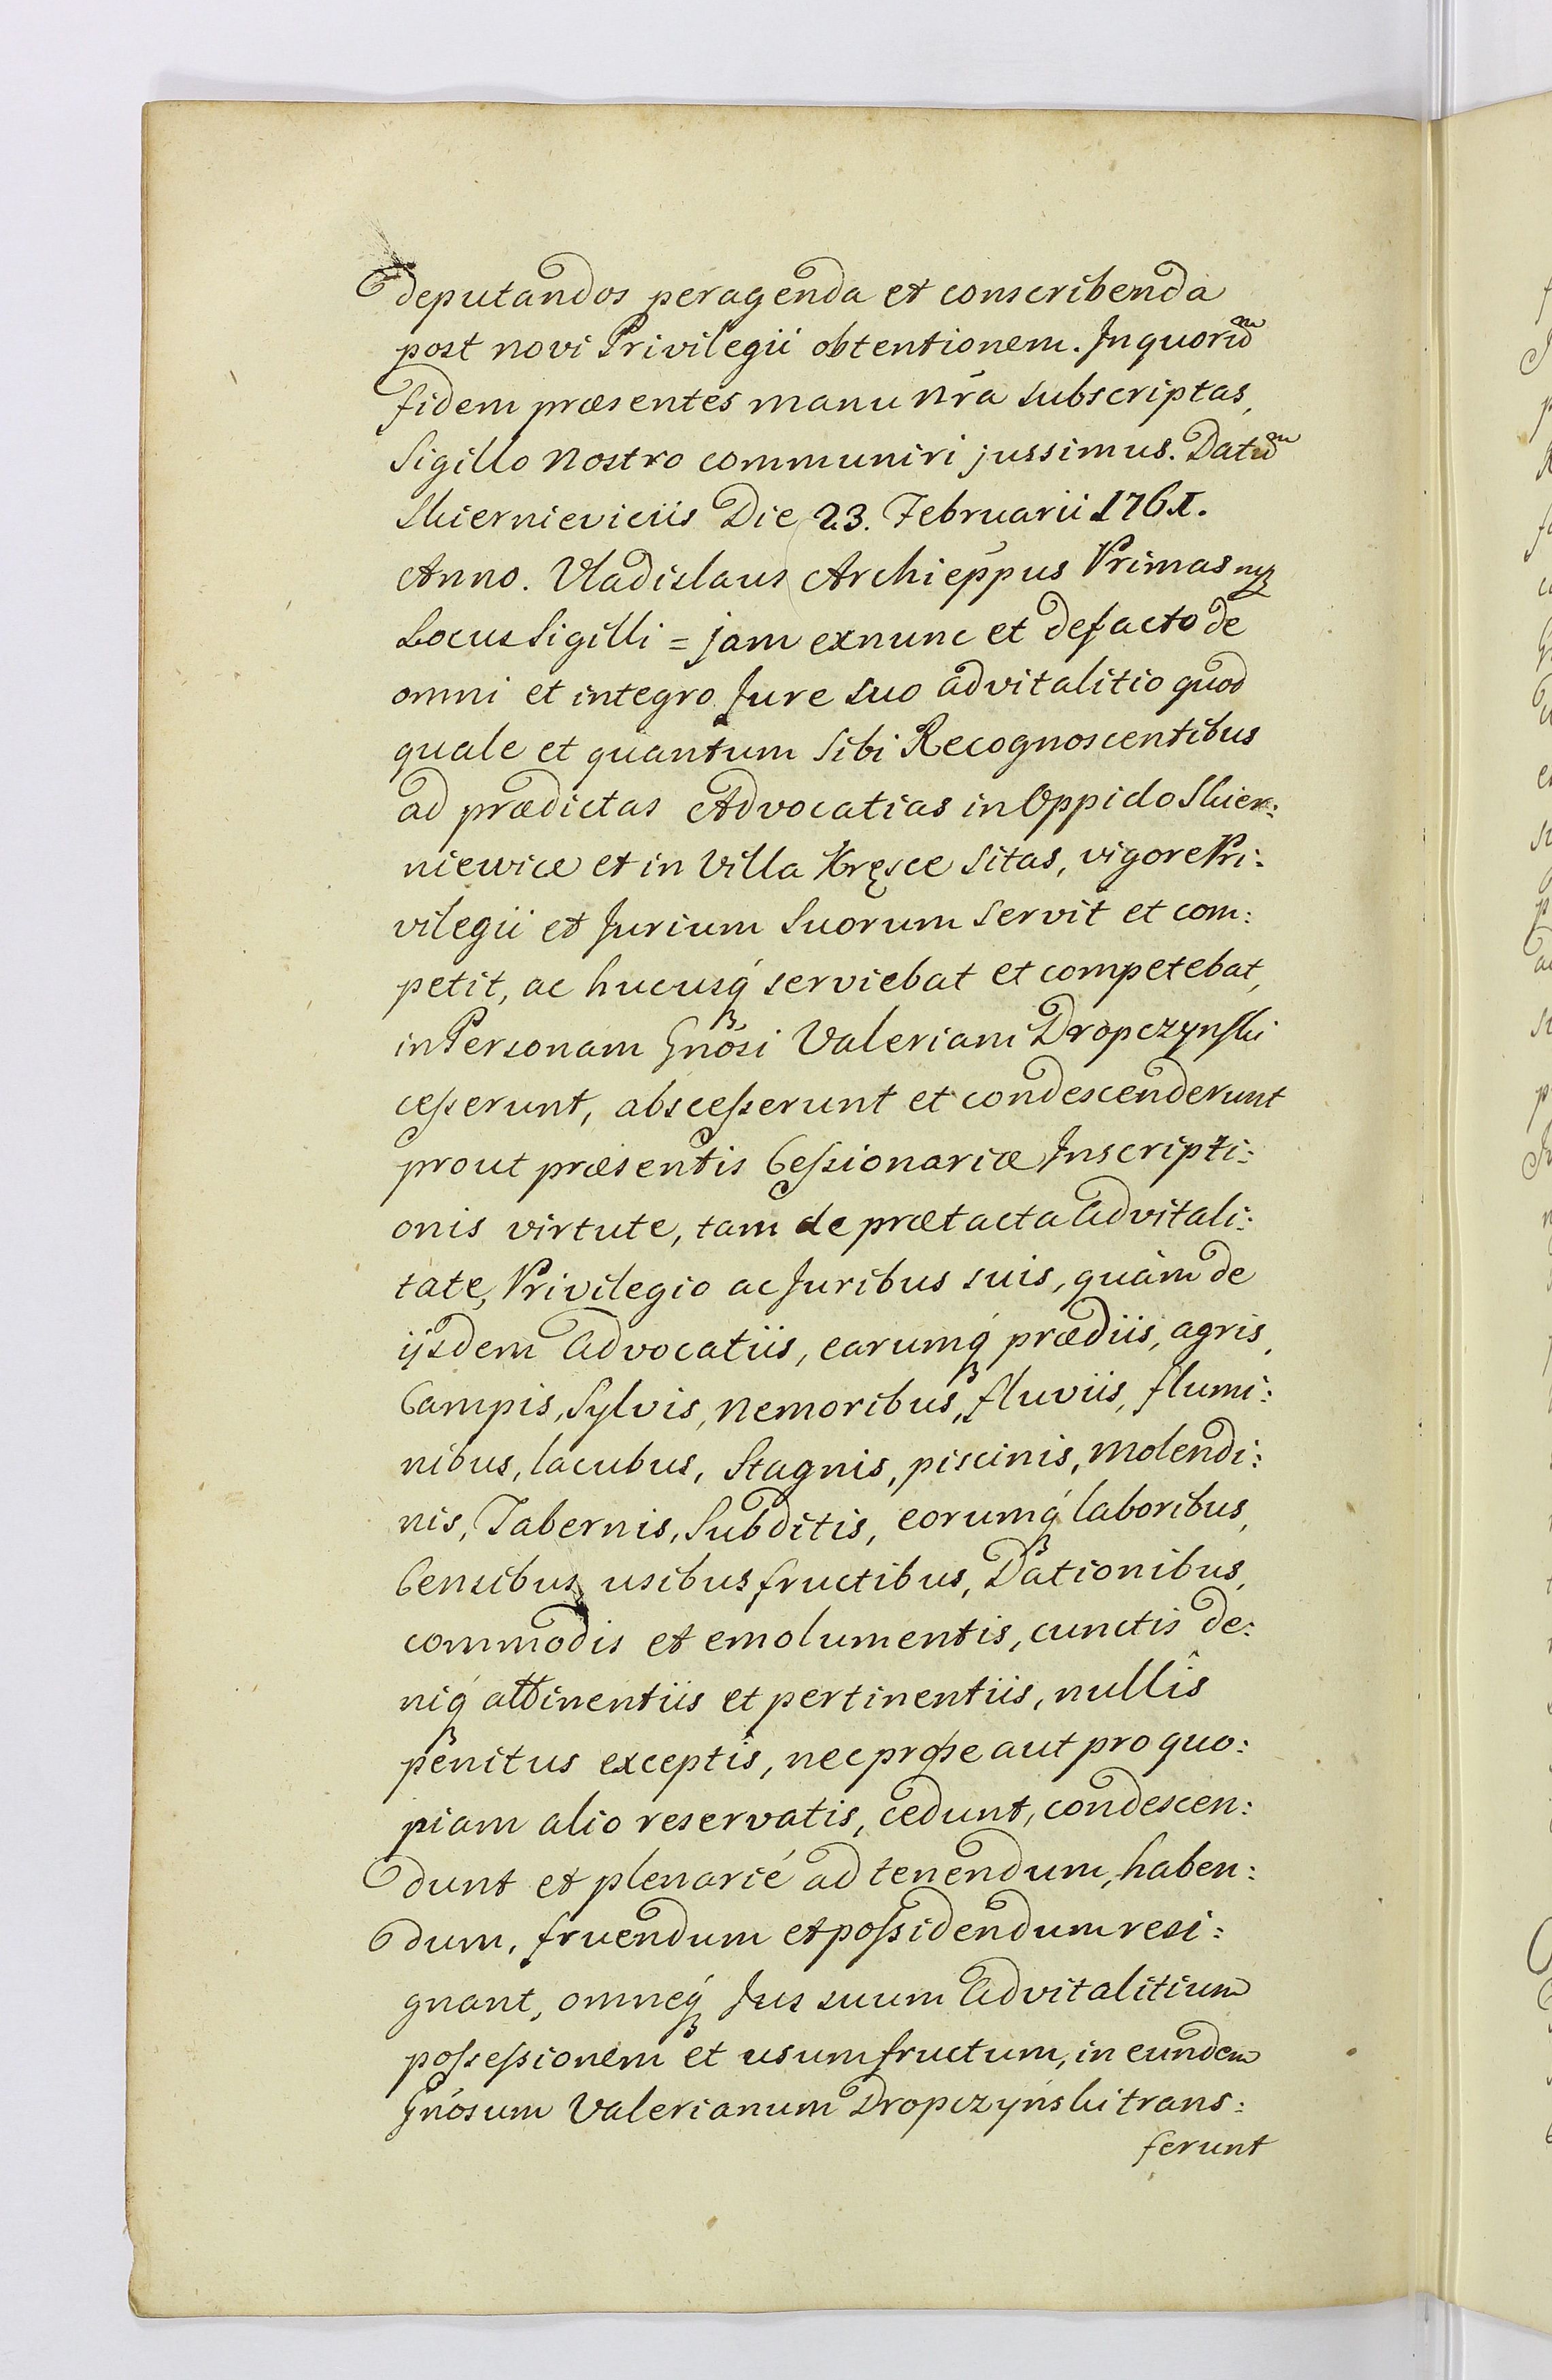 deputandos peragenda et conscribenda
post novi Privilegii obtentionem. In quorũ
fidem præsentes manu nr̃a subscriptas,
Sigillo nostro communiri jussimus. Datũ
Skiernieviciis Die 23. Februarii 1761.
Anno. Vladislaus Archiep̃pus Primas mp
Locus Sigilli = jam exnunc et defacto de
omni et integro Jure suo advitalitio quod
quale et quantum sibi Recognoscentibus
ad prædictas Advocatias in Oppido Skier:
niewice et in Villa Kręsce sitas, vigore Pri:
vilegii et Jurium suorum servit et com:
petit, ac hucusq́ serviebat et competebat,
in Personam Gnõsi Valeriani Dropczynski
cesserunt, abscesserunt et condescenderunt
prout præsentis Cessionariæ Inscripti:
onis virtute, tam de prætacta Advitali:
tate, Privilegio ac Juribus suis, quàm de
ijsdem Advocatiis, earumq́ prædiis, agris,
Campis, Sylvis, nemoribus, fluviis, flumi:
nibus, lacubus, Stagnis, piscinis, molendi:
nis, Tabernis, Subditis, eorumq́ laboribus,
Censibus, usibusfructibus, Dationibus,
commodis et emolumentis, cunctis de:
niq́ attinentiis et pertinentiis, nullîs
penitus exceptîs, nec pro se aut pro quo:
piam alio reservatis, cedunt, condescen:
dunt et plenarié ad tenendum, haben:
dum, fruendum et possidendum resi:
gnant, omneq́ Jus suum Advitalitium
possessionem et usumfructum, in eundem
Gnósum Valerianum Dropczyński trans:
ferunt